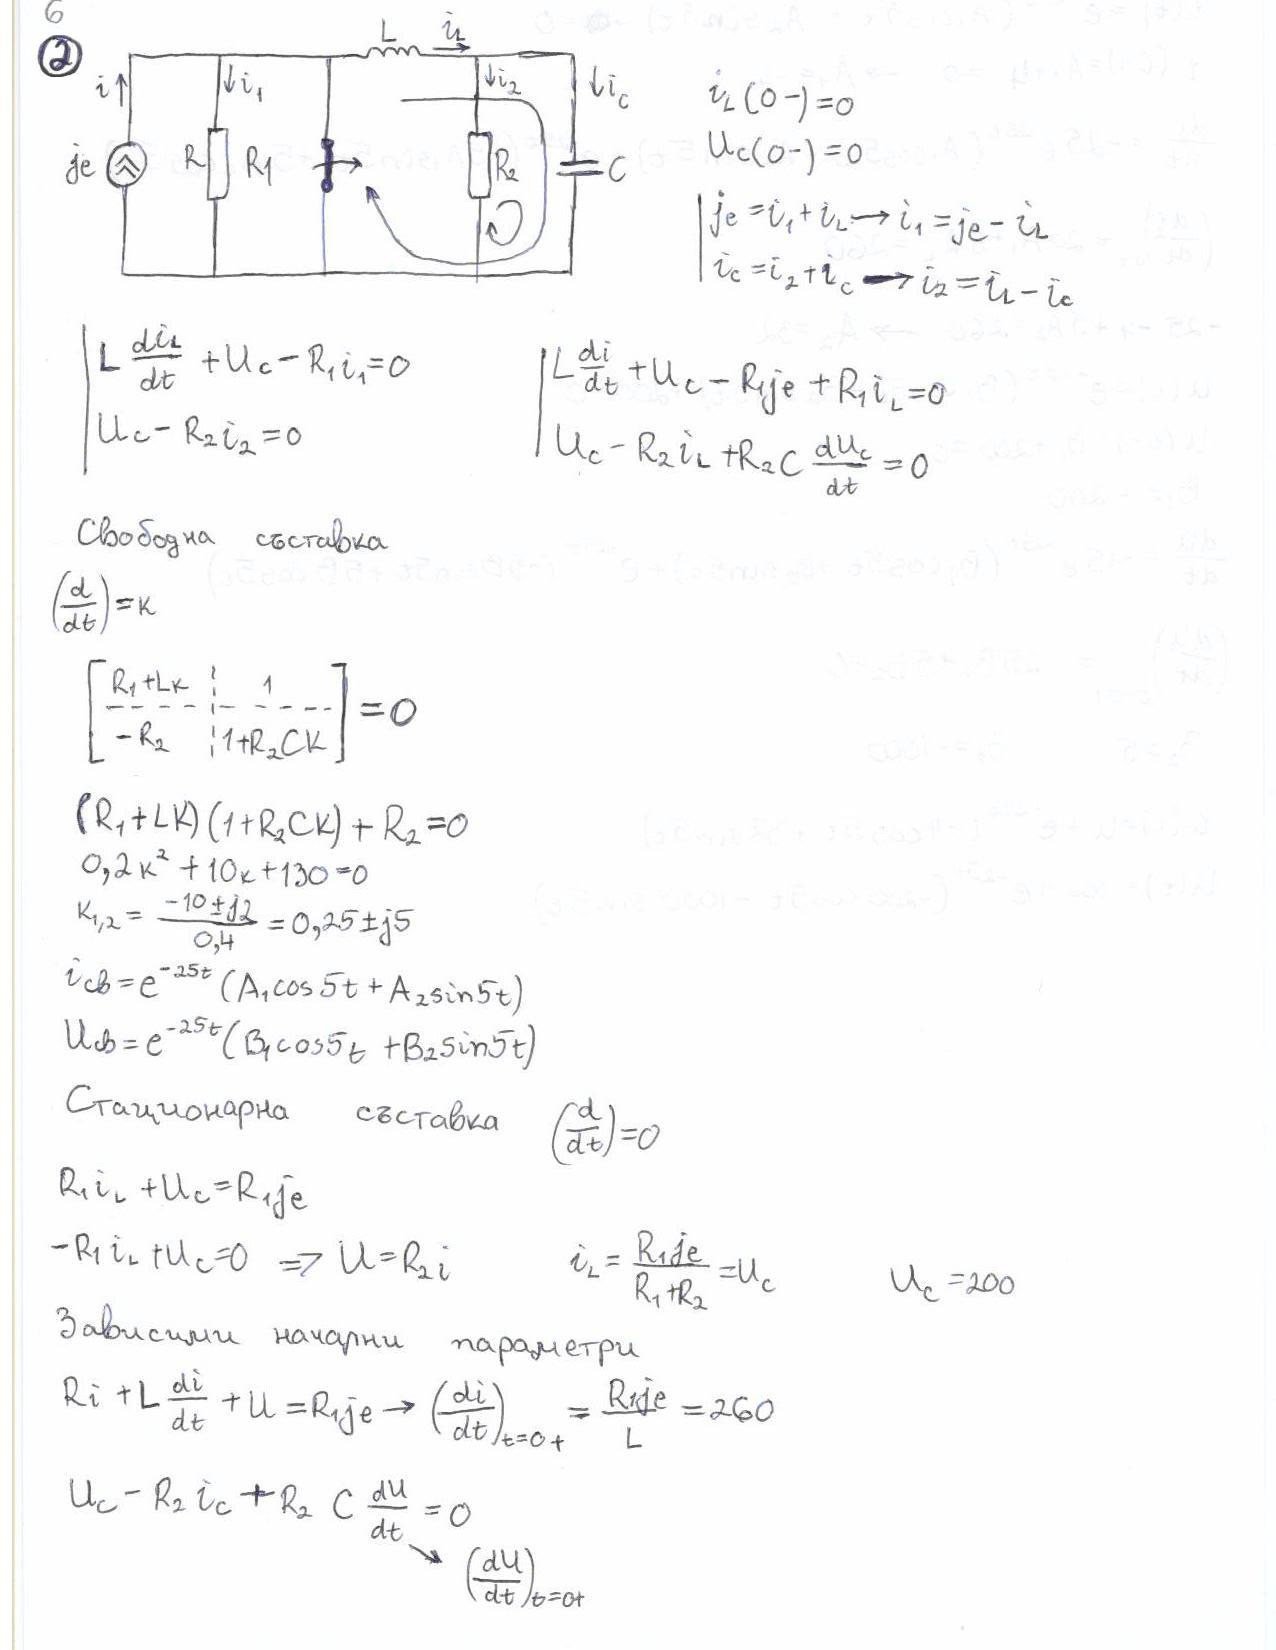 6
2
L iL
i i1 i2 ic
je R R1 R2 C
iL(0-)=0
Uc(0-)=0
je=i1+iL→i1=je-iL
ic=i2+ic→i2=iL-ic
L diL/dt +Uc-R1i1=0
Uc-R2i2=0
L di/dt +Uc-R1je+R1iL=0
Uc-R2iL+R2C dUc/dt=0
Свободна съставка
(d/dt)=k
[R1+Lk 1
-R2 1+R2CK]=0
(R1+LK)(1+R2CK)+R2=0
0,2k²+10k+130=0
K1,2= -10±j2/0,4 =0,25±j5
iсв=e^-25t(A1cos5t+A2sin5t)
Uсв=e^-25t(B1cos5t+B2sin5t)
Стационарна съставка (d/dt)=0
R1iL+Uc=R1je
-R1iL+Uc=0 => U=R2i iL= R1je/R1+R2 =Uc Uc=200
Зависими начални параметри
Ri+L di/dt +U=R1je→(di/dt)t=0+ = R1je/L =260
Uc-R2ic+R2 C dU/dt=0
(dU/dt)t=0+